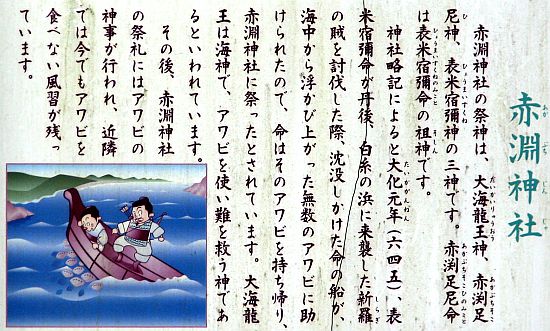 赤淵神社
赤淵神社の祭神は、大海龍王神、赤渕足
尼神、表米宿彌神の三神です。赤渕足尼命
は表米宿彌命の祖神です。
神社略記によると大化元年(六四五)、表
米宿彌命が丹後、白糸の浜に来襲した新羅
の賊を討伐した際、沈没しかけた命の船が、
海中から浮かび上がった無数のアワビに助
けられたので、命はそのアワビを持ち帰り、
赤淵神社に祭ったとされています。大海龍
王は海神で、アワビを使い難を救う神であ
るといわれています。
その後、赤淵神社
の祭礼にはアワビの
神事が行われ、近隣
では今でもアワビを
食べない風習が残っ
ています。